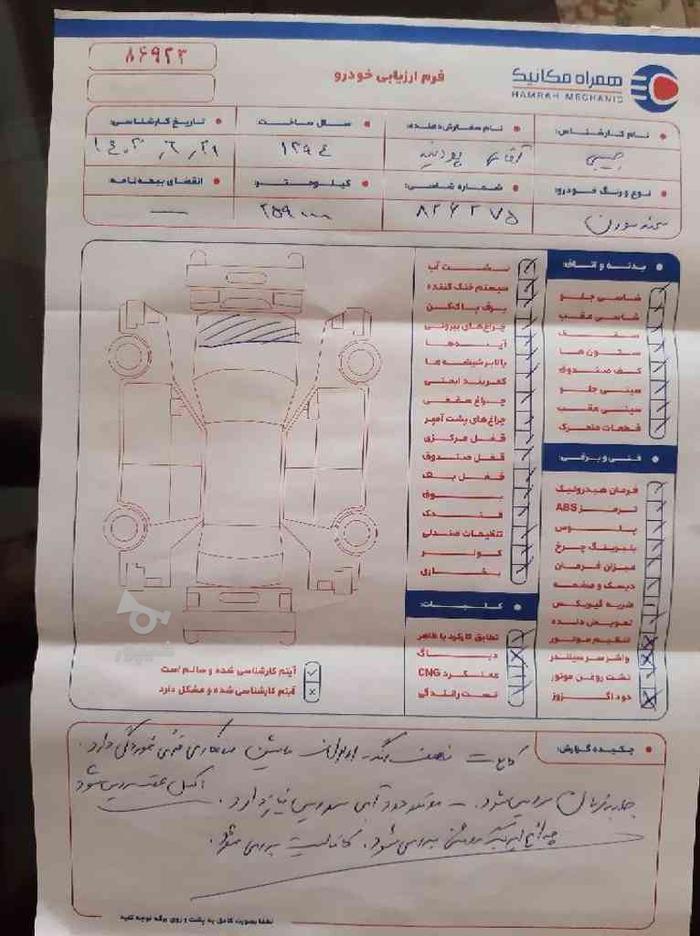 همراه مکانیک
HAMRAH MECHANIC
فرم ارزیابی خودرو
۸۶۹۲۳
نام کارشناس:
نام سفارش دهنده:
سال ساخت
تاریخ کارشناسی:
حبیبی
آقای
۱۳۹۴
۱۴۰۲,۶,۲۹
نوع و رنگ خودرو:
شماره شاسی:
کیلومتر:
انقضای بیمه نامه:
سمند سورن
۸۲۶۲۷۵
۲۵۹۰۰۰
—
بدنه و اتاق:
شاسی جلو
شاسی عقب
سقف
ستون ها
کف صندوق
سینی جلو
سینی عقب
قطعات متحرک
فنی و برقی:
فرمان هیدرولیک
ترمز ABS
پلوس
بلبرینگ چرخ
میزان فرمان
دیسک و صفحه
ضربه گیربکس
تعویض دنده
تنظیم موتور
واشر سر سیلندر
نشت روغن موتور
دود اگزوز
نشت آب
سیستم خنک کننده
برف پاک کن
چراغ‌های بیرونی
آینه‌ها
بالابر شیشه ها
کمربند ایمنی
چراغ سقفی
چراغ‌های پشت آمپر
قفل مرکزی
قفل صندوق
قفل سقف
بوق
فندک
تنظیمات صندلی
کولر
بخاری
کلیات:
تطابق کارکرد با ظاهر
دیاگ
عملکرد CNG
تست رانندگی
آیتم کارشناسی شده و سالم است
آیتم کارشناسی شده و مشکل دارد
شیپور
چکیده گزارش:
کاپوت
ماشین
خوردگی دارد.
بررسی شود.
سرویس نیاز دارد.
بررسی شود
چراغ ایربگ روشن بررسی شود.
لطفا بصورت کامل به پشت و روی برگه توجه کنید